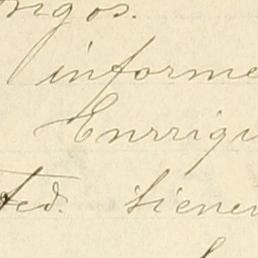 ngos.
informe
Enrriqu
ted. tienen